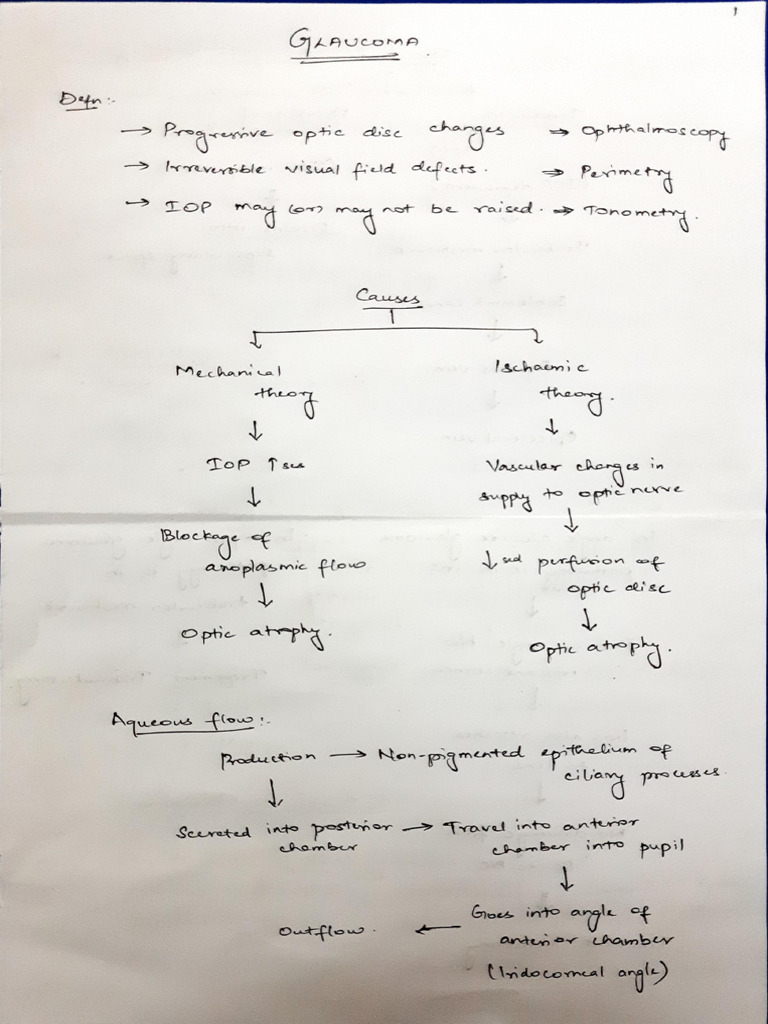 1
GLAUCOMA
Defn:-
→ Progressive optic disc changes ⇒ Ophthalmoscopy
→ Irreversible visual field defects. ⇒ Perimetry
→ IOP may (or) may not be raised. ⇒ Tonometry.
Causes
Mechanical theory
↓
IOP ↑ses
↓
Blockage of
axoplasmic flow
↓
Optic atrophy.
Ischaemic
theory.
↓
Vascular changes in
supply to optic nerve
↓
↓sed perfusion of
optic disc
↓
Optic atrophy.
Aqueous flow:-
Production → Non-pigmented epithelium of
ciliary processes.
↓
Secreted into posterior
chamber
→ Travel into anterior
chamber into pupil
↓
Goes into angle of
anterior chamber
(Iridocorneal angle)
Outflow. ←